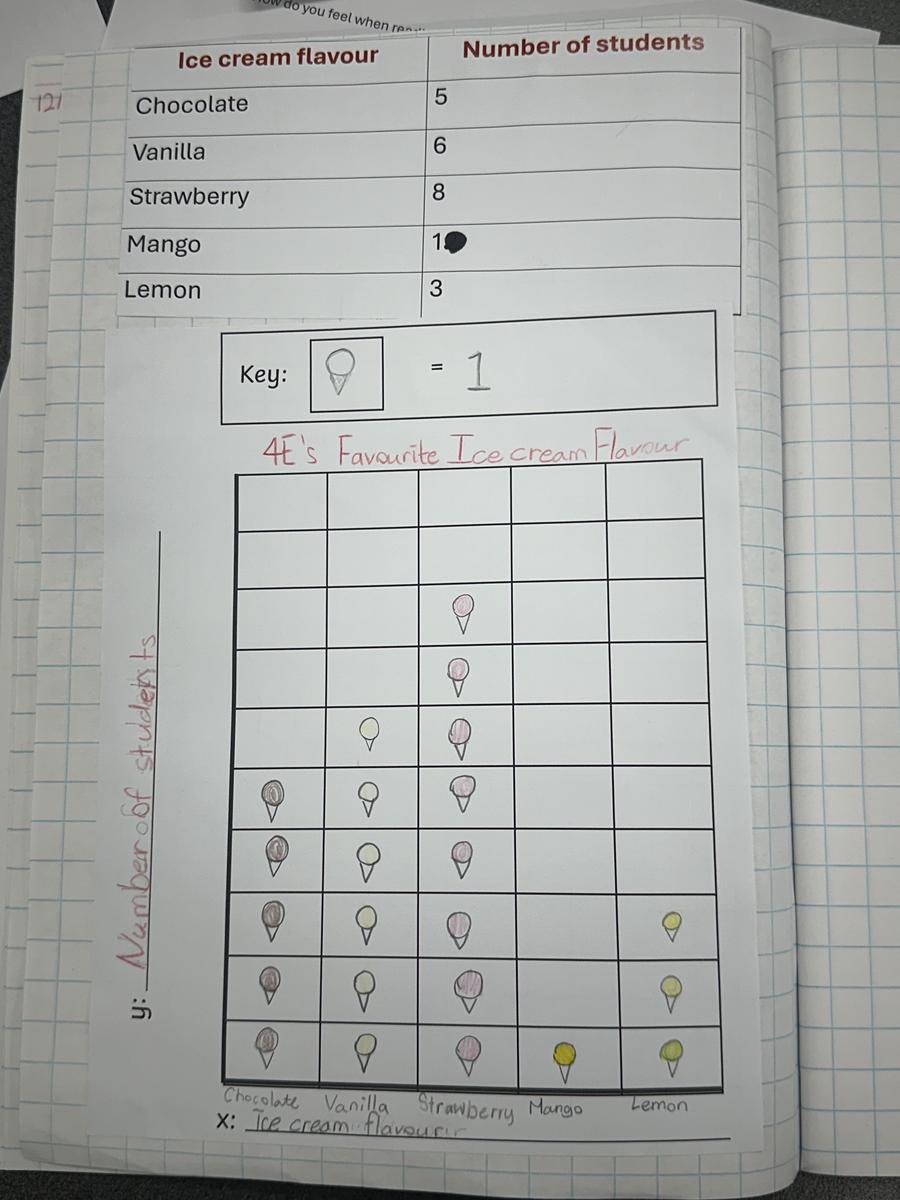 ow do you feel when rea
121
Ice cream flavour Number of students
Chocolate 5
Vanilla 6
Strawberry 8
Mango 1
Lemon 3
Key: = 1
4E's Favourite Ice cream Flavour
y: Number of students
Chocolate Vanilla Strawberry Mango Lemon
x: Ice cream flavour